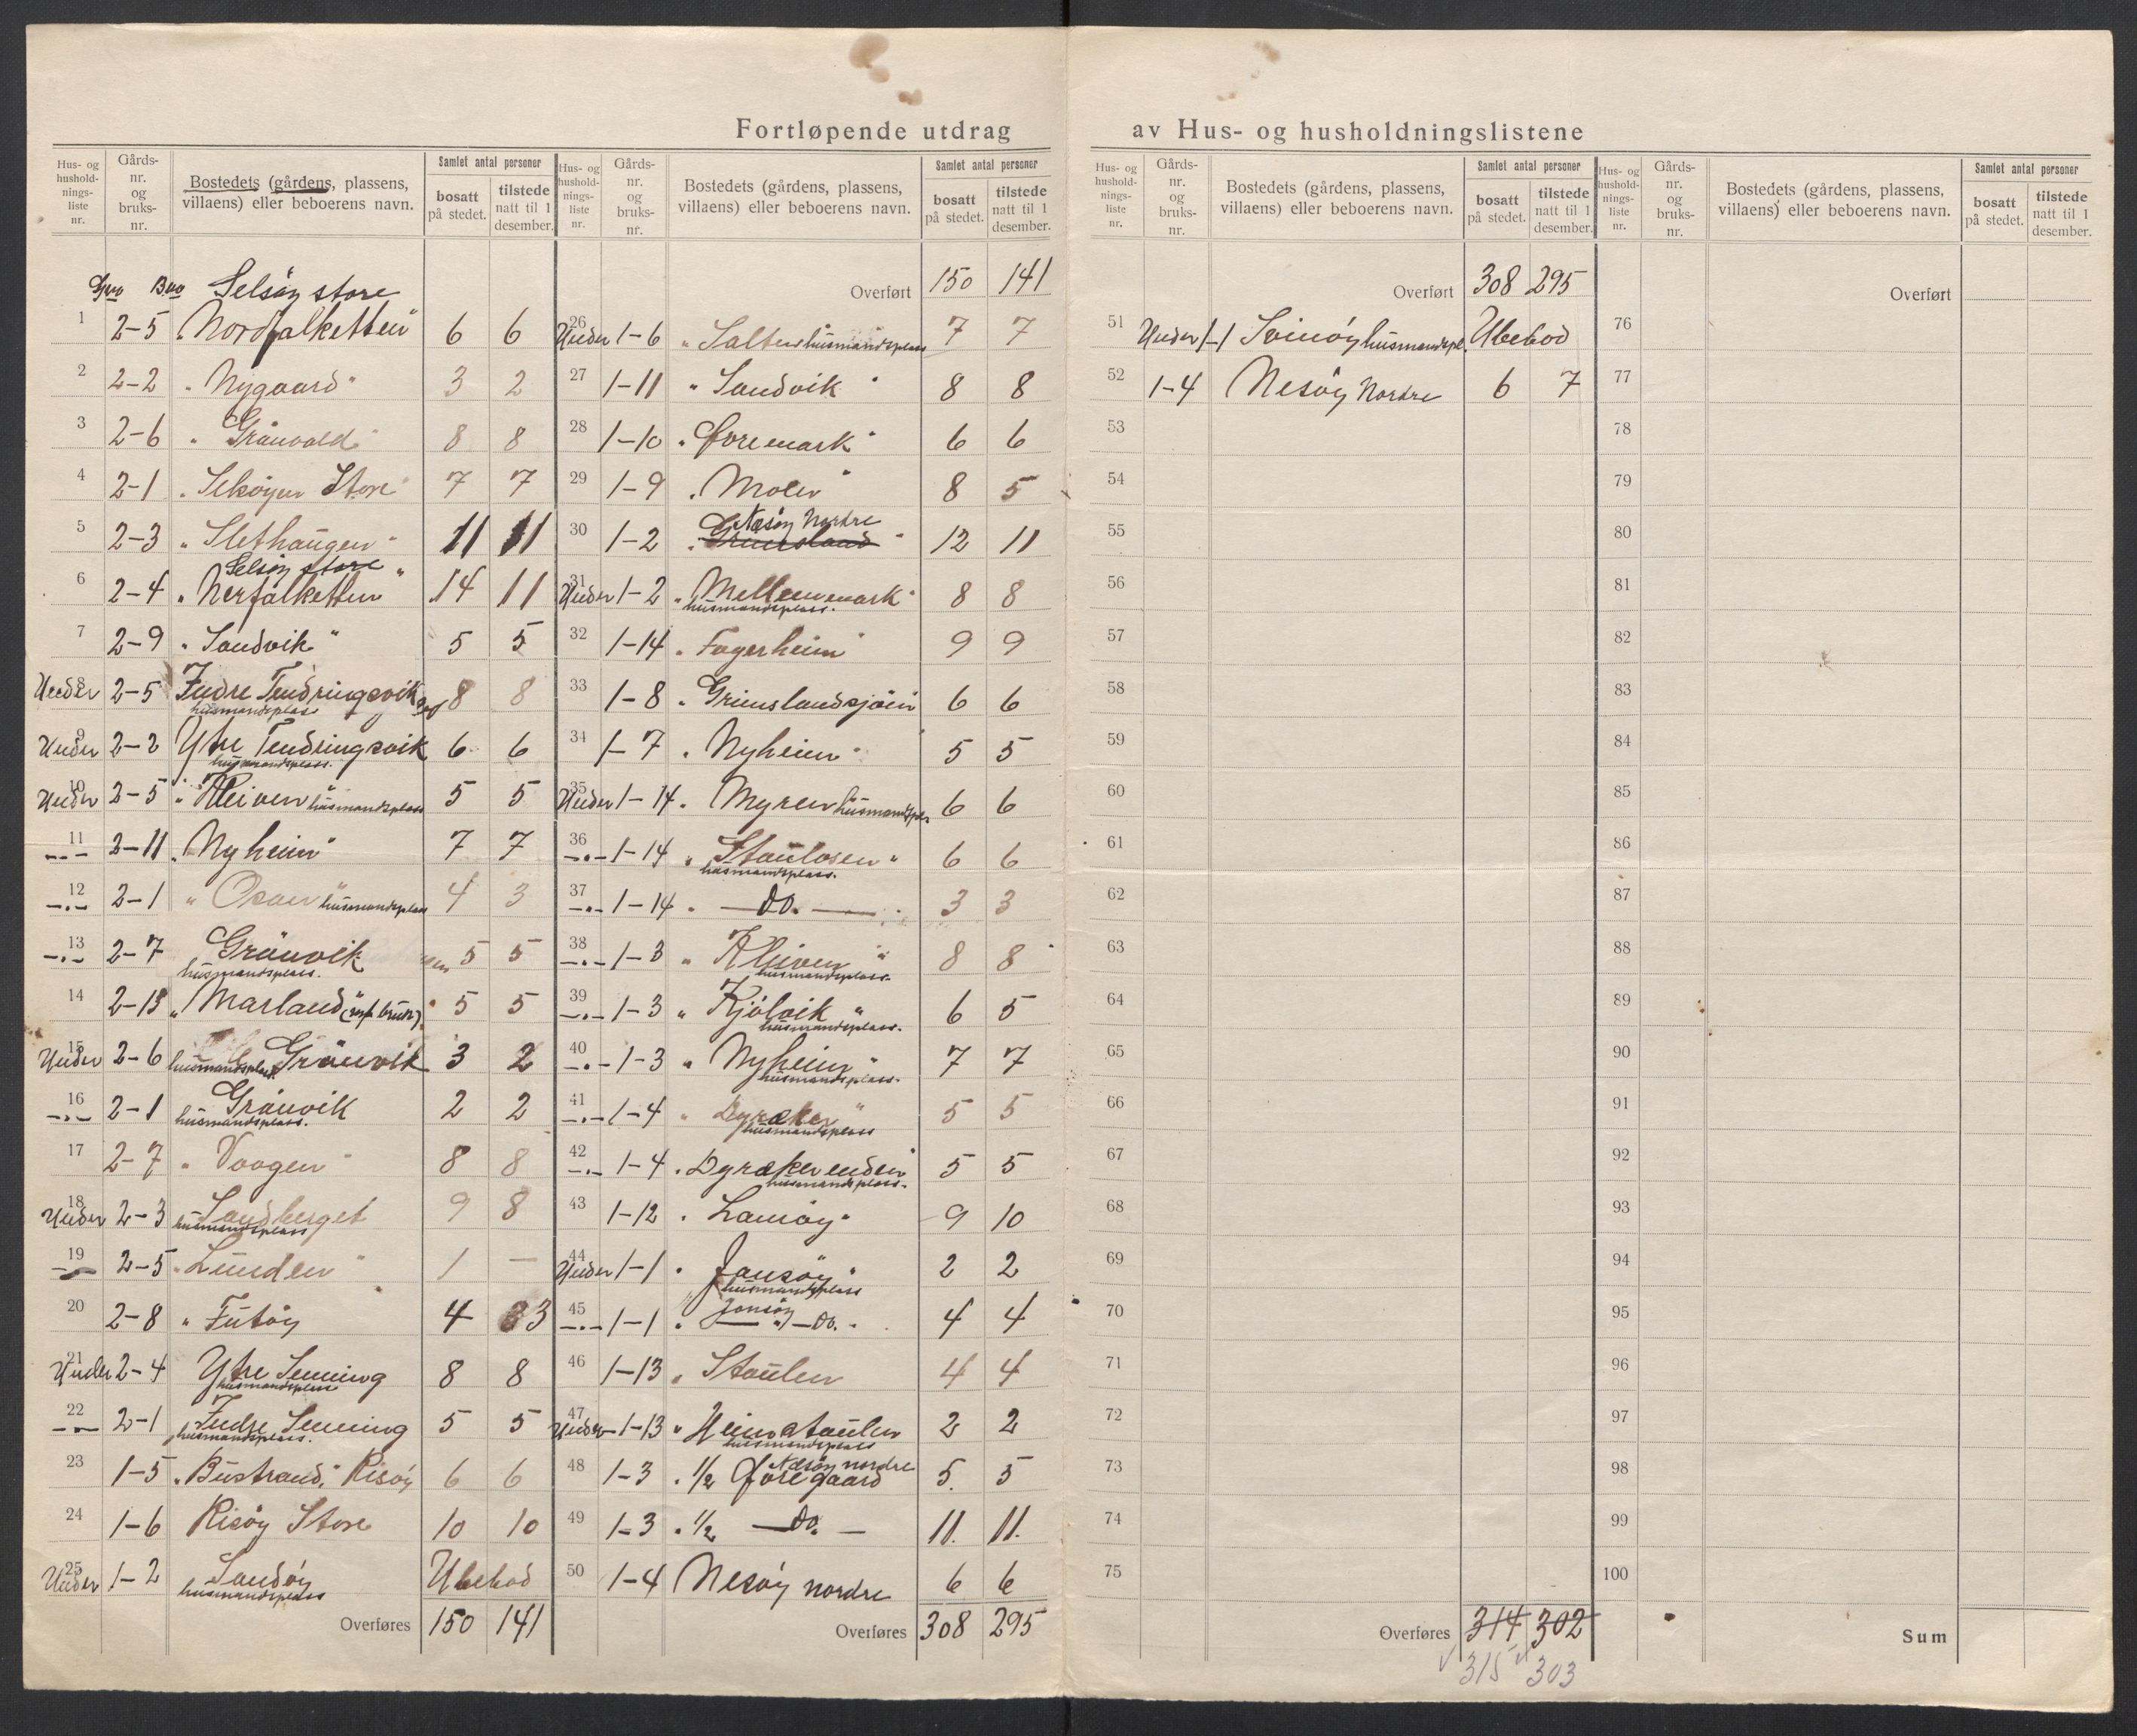 Fortløpende utdrag av Hus- og husholdningslistene
Hus- og husholdnings-liste nr. | Gårds-nr. og bruks-nr. | Bostedets (gårdens, plassens, villaens) eller beboerens navn. | Samlet antal personer: bosatt på stedet. | tilstede natt til 1 desember.
Gno Bno Selsöy store
1 | 2-5 | "Nordfalketten" | 6 | 6
2 | 2-2 | "Nygaard" | 3 | 2
3 | 2-6 | "Grönvold" | 8 | 8
4 | 2-1 | "Selsöyen Store" | 7 | 7
5 | 2-3 | "Slethaugen" | 11 | 11
Selsöy store
6 | 2-4 | "Nerfalketten" | 14 | 11
7 | 2-9 | "Sandvik" | 5 | 5
8 Under | 2-5 | Indre Tendringsvik husmandsplass | 8 | 8
9 Under | 2-2 | Ytre Tendringsvik husmandsplass. | 6 | 6
10 Under | 2-5 | "Kleiven" husmandsplass | 5 | 5
11 -"- | 2-11 | "Nyheim" | 7 | 7
12 -"- | 2-1 | "Osan" husmandsplass | 4 | 3
13 -"- | 2-7 | Grönvik husmandsplass. | 5 | 5
14 | 2-13 | "Marland" | 5 | 5
15 Under | 2-6 | husmandsplass Grönvik | 3 | 2
16 -"- | 2-1 | Grönvik husmandsplass. | 2 | 2
17 | 2-7 | "Vaagen" | 8 | 8
18 Under | 2-3 | Sandberget husmandsplass | 9 | 8
19 -"- | 2-5 | "Lunden" | 1 | —
20 | 2-8 | "Futöy | 4 | 3
21 Under | 2-4 | Ytre Senning husmandsplass | 8 | 8
22 -"- | 2-1 | Indre Senning husmandsplass. | 5 | 5
23 | 1-5 | "Bustrand," Risöy | 6 | 6
24 | 1-6 | Risöy Store | 10 | 10
25 Under | 1-2 | Sandöy husmandsplass | Ubebod
Overføres | 150 | 141
Hus- og husholdnings-liste nr. | Gårds-nr. og bruks-nr. | Bostedets (gårdens, plassens, villaens) eller beboerens navn. | Samlet antal personer: bosatt på stedet. | tilstede natt til 1 desember.
Overført | 150 | 141
26 Under | 1-6 | "Salten" husmandsplass | 7 | 7
27 | 1-11 | "Sandvik" | 8 | 8
28 | 1-10 | "Foremark" | 6 | 6
29 | 1-9 | "Molen" | 8 | 5
Nesöy Nordre
30 | 1-2 | "Grimsland" | 12 | 11
31 Under | 1-2 | "Mellemmark" husmandsplass. | 8 | 8
32 | 1-14 | "Fagerheim" | 9 | 9
33 | 1-8 | "Grimslandsjöen | 6 | 6
34 | 1-7 | "Nyheim" | 5 | 5
35 Under | 1-14 | "Myren husmandspl. | 6 | 6
36 -"- | 1-14 | "Staulosen" husmandsplass. | 6 | 6
37 -"- | 1-14 | " —Do.— | 3 | 3
38 -"- | 1-3 | "Kleiven" husmandsplass. | 8 | 8
39 -"- | 1-3 | "Kjölvik" husmandsplass. | 6 | 5
40 -"- | 1-3 | "Nyheim" husmandsplass. | 7 | 7
41 -"- | 1-4 | "Dyraker" husmandsplass | 5 | 5
42 -"- | 1-4 | "Dyrakerenden" husmandsplass. | 5 | 5
43 | 1-12 | "Lamöy" | 9 | 10
44 Under | 1-1 | "Jonsöy" husmandsplass | 2 | 2
45 -"- | 1-1 | " Jonsöy —"— Do. | 4 | 4
46 | 1-13 | "Staulen | 4 | 4
47 Under | 1-13 | "Heimstaulen husmandsplass | 2 | 2
48 | 1-3 | "1/2 Foregaard Nesöy nordre | 5. | 5
49 | 1-3 | "1/2 —Do.— | 11. | 11.
50 | 1-4 | Nesöy nordre | 6 | 6
Overføres | 308 | 295
Hus- og husholdnings-liste nr. | Gårds-nr. og bruks-nr. | Bostedets (gårdens, plassens, villaens) eller beboerens navn. | Samlet antal personer: bosatt på stedet. | tilstede natt til 1 desember.
Overført | 308 | 295
51 | Under 1-1 | Svinöy husmandspl. | Ubebod
52 | 1-4 | Nesöy Nordre | 6 | 7
53
54
55
56
57
58
59
60
61
62
63
64
65
66
67
68
69
70
71
72
73
74
75
Overføres | 314 | 302
315 303
Hus- og husholdnings-liste nr. | Gårds-nr. og bruks-nr. | Bostedets (gårdens, plassens, villaens) eller beboerens navn. | Samlet antal personer: bosatt på stedet. | tilstede natt til 1 desember.
Overført
76
77
78
79
80
81
82
83
84
85
86
87
88
89
90
91
92
93
94
95
96
97
98
99
100
Sum